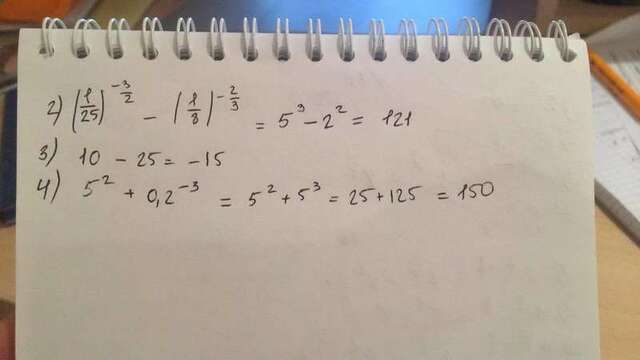 2) (1/25)^(-3/2) - (1/8)^(-2/3) = 5^3 - 2^2 = 121
3) 10 - 25 = -15
4) 5^2 + 0,2^-3 = 5^2 + 5^3 = 25 + 125 = 150